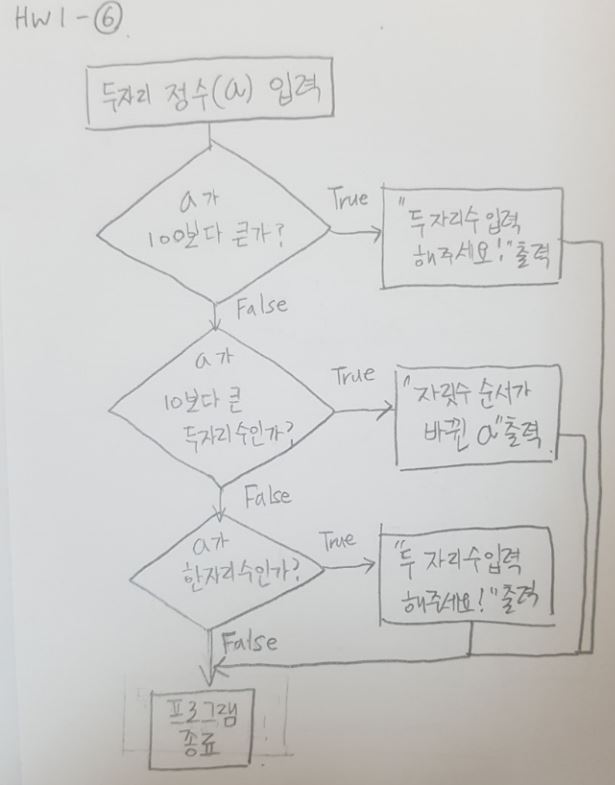 HW1-⑥
두자리 정수(a) 입력
a가
100보다 큰가?
True
"두 자리수 입력
해주세요!"출력
False
a가
10보다 큰
두자리수인가?
True
"자릿수 순서가
바뀐 a"출력
False
a가
한자리수인가?
True
"두 자리수입력
해주세요!"출력
False
프로그램
종료